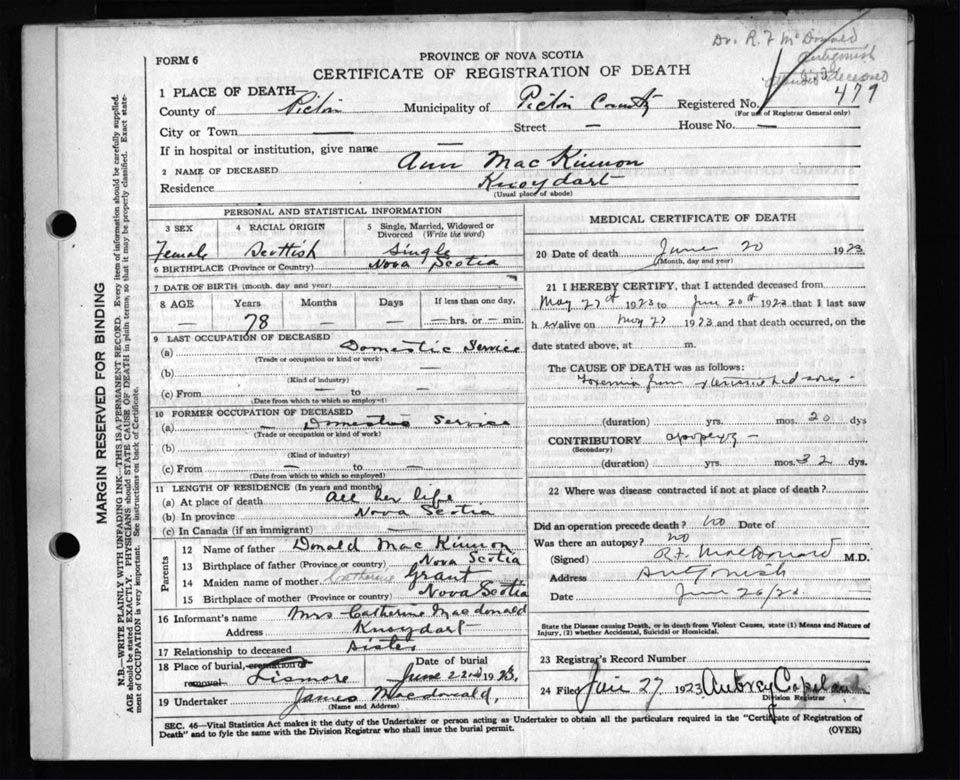 Dr. R F McDonald
Antigonish
attended deceased
FORM 6
PROVINCE OF NOVA SCOTIA
CERTIFICATE OF REGISTRATION OF DEATH
479
1 PLACE OF DEATH—
County of Pictou Municipality of Pictou County Registered No.
(For use of Registrar General only)
City or Town — Street — House No. —
If in hospital or institution, give name —
2 NAME OF DECEASED Ann MacKinnon
Residence Knoydart
(Usual place of abode)
PERSONAL AND STATISTICAL INFORMATION
3 SEX 4 RACIAL ORIGIN 5 Single, Married, Widowed or Divorced (Write the word)
Female Scottish Single
6 BIRTHPLACE (Province or Country) Nova Scotia
7 DATE OF BIRTH (month, day and year)
8 AGE Years Months Days If less than one day,
— 78 — — — hrs. or — min.
9 LAST OCCUPATION OF DECEASED
(a) Domestic Service
(Trade or occupation or kind or work)
(b) —
(Kind of industry)
(c) From — to —
(Date from which to which so employed)
10 FORMER OCCUPATION OF DECEASED
(a) — Domestic Service
(Trade or occupation or kind of work)
(b)
(Kind of industry)
(c) From — to —
(Date from which to which so employed)
11 LENGTH OF RESIDENCE (In years and months)
(a) At place of death all her life
(b) In province Nova Scotia
(c) In Canada (if an immigrant) —
Parents
12 Name of father Donald MacKinnon
13 Birthplace of father (Province or country) Nova Scotia
14 Maiden name of mother Catherine Grant
15 Birthplace of mother (Province or country) Nova Scotia
16 Informant's name Mrs Catherine Macdonald
Address Knoydart
17 Relationship to deceased Sister
18 Place of burial, cremation or removal Lismore Date of burial June 22nd 1923.
19 Undertaker James Macdonald,
(Name and Address)
MEDICAL CERTIFICATE OF DEATH
20 Date of death June 20 1923
(Month, day and year)
21 I HEREBY CERTIFY, that I attended deceased from
May 27th 1923 to June 20th 1923 that I last saw
h er alive on May 27 1923 and that death occurred, on the
date stated above, at m.
The CAUSE OF DEATH was as follows:
Toxemia from bed sores
(duration) yrs. mos. 20 dys
CONTRIBUTORY apoplexy —
(Secondary)
(duration) yrs. mos. 32 dys.
22 Where was disease contracted if not at place of death?
Did an operation precede death? no Date of
Was there an autopsy? no
(Signed) R.F. MacDonald M.D.
Address Antigonish
Date June 20/23
State the Disease causing Death, or in death from Violent Causes, state (1) Means and Nature of
Injury, (2) whether Accidental, Suicidal or Homicidal.
23 Registrar's Record Number
24 Filed June 27 1923 Aubrey Copeland
Division Registrar
SEC. 46—Vital Statistics Act makes it the duty of the Undertaker or person acting as Undertaker to obtain all the particulars required in the "Certificate of Registration of
Death" and to fyle the same with the Division Registrar who shall issue the burial permit.
(OVER)
MARGIN RESERVED FOR BINDING
N.B.—WRITE PLAINLY WITH UNFADING INK—THIS IS A PERMANENT RECORD. Every item of information should be carefully supplied.
AGE should be stated EXACTLY. PHYSICIANS should STATE CAUSE OF DEATH in plain terms, so that it may be properly classified. Exact state-
ment of OCCUPATION is very important. See instructions on back of Certificate.